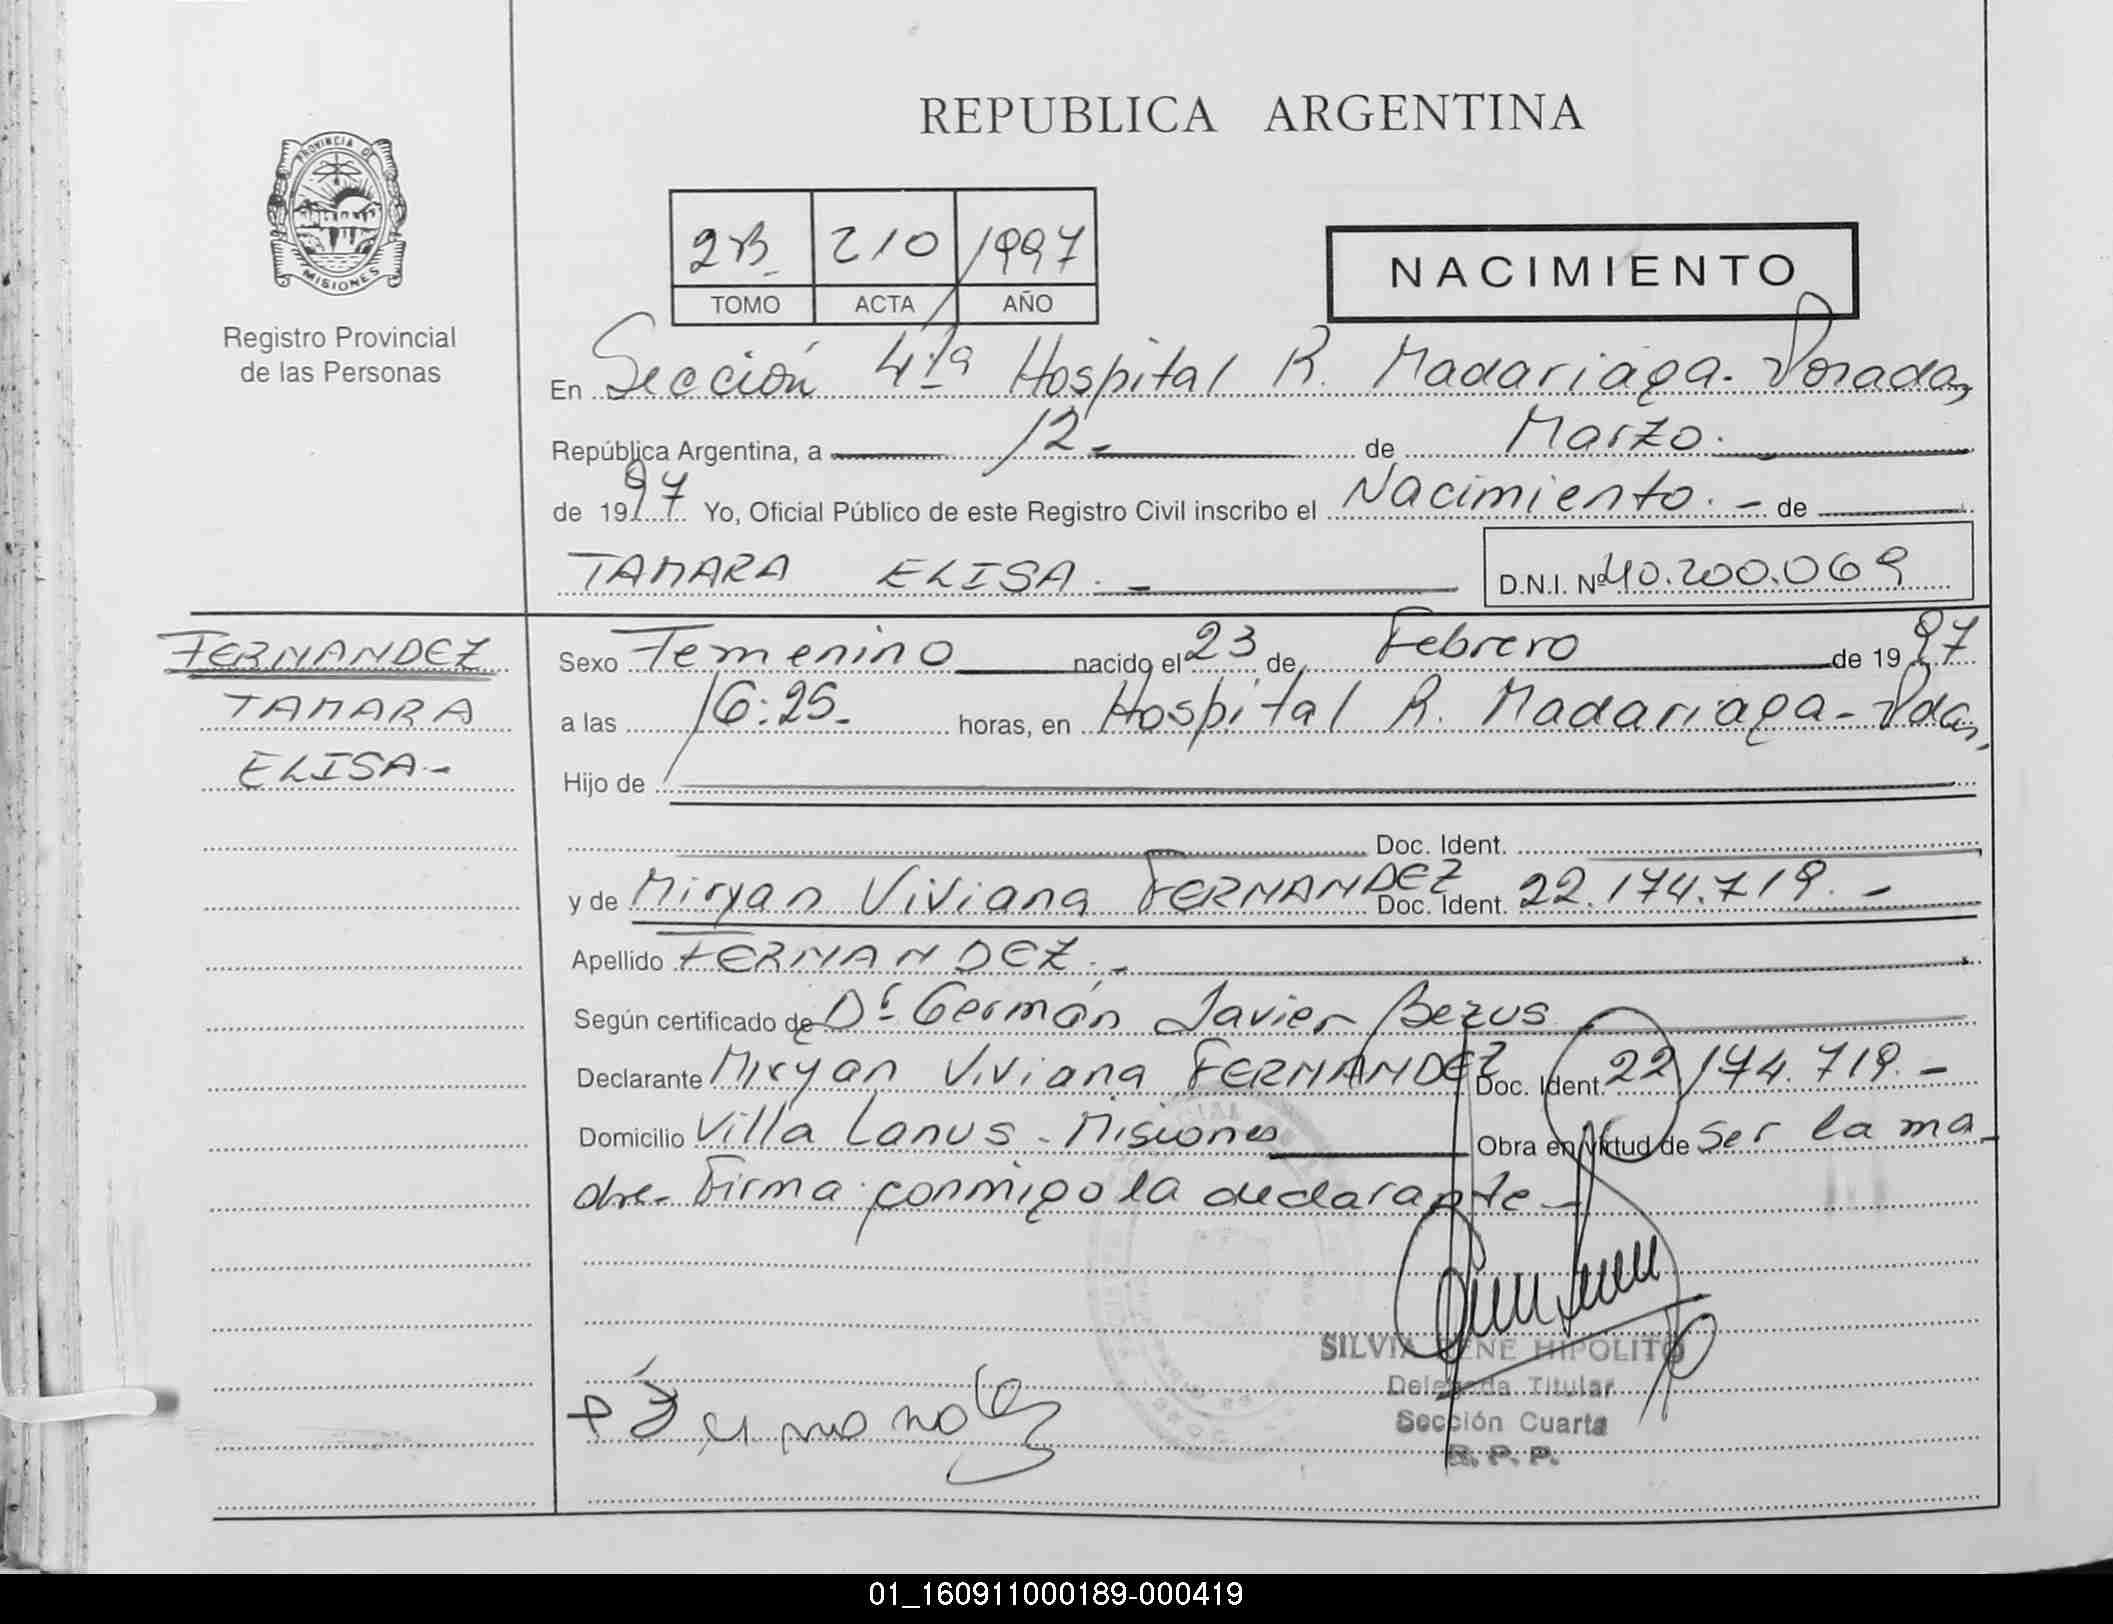 REPUBLICA ARGENTINA
PROVINCIA DE
MISIONES
Registro Provincial
de las Personas
2B 210 1997
TOMO ACTA AÑO
NACIMIENTO
En Sección 4ta Hospital R. Madariaga - Posadas
República Argentina, a 12 - de Marzo. -
de 1997 Yo, Oficial Público de este Registro Civil inscribo el Nacimiento. - de
TAMARA ELISA. - D.N.I. Nº 40.200.069
FERNANDEZ
TAMARA
ELISA. -
Sexo Femenino nacido el 23 de Febrero de 1997
a las 16:25. horas, en Hospital R. Madariaga - Pdas,
Hijo de
Doc. Ident.
y de Miryan Viviana FERNANDEZ Doc. Ident. 22.174.719. -
Apellido FERNANDEZ. -
Según certificado de Dr Germán Javier Bezus
Declarante Miryan Viviana FERNANDEZ Doc. Ident. 22.174.719. -
Domicilio Villa Lanus - Misiones Obra en virtud de ser la ma
dre - Firma conmigo la declarante -
SILVIA RENE HIPOLITO
Delegada Titular
Sección Cuarta
R. P. P.
01_160911000189-000419